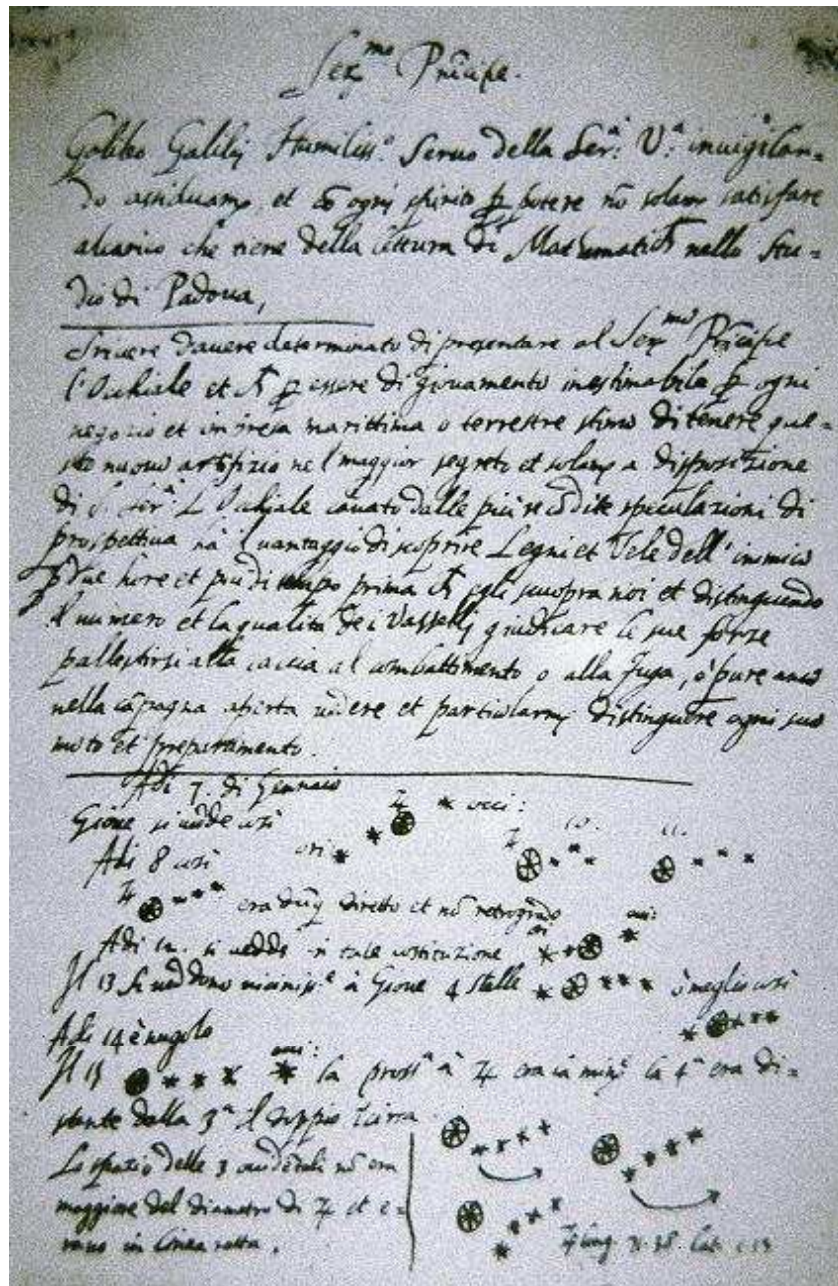 Ser.mo Principe.
Galileo Galilej Humiliss.o Seruo della Ser.a V.a inuigilan=
do assiduam.te et cõ ogni spirito p̱ potere nõ solam.te satisfare
alcarico che tiene della lettura di Mathematich nello Stu=
dio di Padoua,
Scriuere dauere determinato di presentare al Ser.mo Principe
l'Occhiale et p̱ essere di giouamento inestimabile p̱ ogni
negozio et impresa marittima o terrestre stimo di tenere que=
sto nuouo artifizio nel maggior segreto et solam.te a disposizione
di S. Ser.a L'Occhiale cauato dalle più recõdite speculazioni di
prospettiua ha il uantaggio di scoprire Legni et Vele dell'inimico
p̱ due hore et più di tempo prima ch egli scuopra noi et distinguendo
il numero et la qualità de i Vasselli giudicare le sue forze
pallestirsi alla caccia al combattimento o alla fuga, ò pure anco
nella cãpagna aperta uedere et particolarm.te distinguere ogni suo
moto et preparamento.
Adi 7. di Gennaio
Gioue si uede così ♃ occi:
Adi 8 così ori ♃ 10. 11.
♃ era dũq diretto et nõ retrogrado
Adi 12. si uedde in tale costituzione ori occi:
Il 13 si ueddono uiciniss.e à Gioue 4 stelle ò meglio così
Adi 14 è nugolo
Il 15 occi: la pross.a à ♃ era la min.e la 4.a era di=
stante dalla 3.a il doppio circa
Lo spazio delle 3 occidentali nõ era
maggiore del diametro di ♃ et e=
rano in linea retta.
♃ long. 71.38. Lat. 1.13